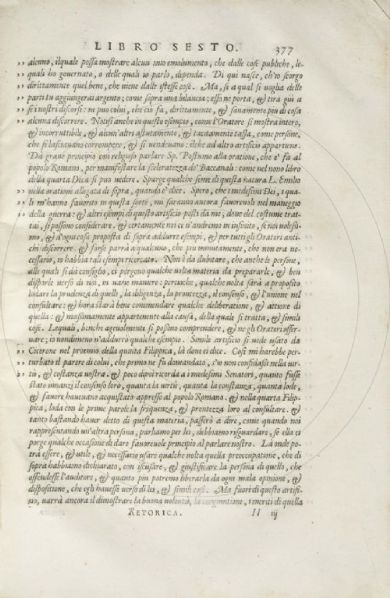 LIBRO SESTO. 377
alcuno, ilquale possa mostrare alcun mio emolumento, che dalle cose publiche, le-
quali ho governato, o delle quali io parlo, dependa. Di qui nasce, ch'io scorgo
dirittamente quel bene, che viene dalle istesse cose. Ma, se a qual si voglia delle
parti tu aggiungerai argento; come sopra una bilancia; esso ne porta, & tira giù a
se i nostri discorsi: ne può colui, che ciò fa, dirittamente, & sanamente più di cosa
alcuna discorrere. Notisi anche in questo esempio, come l'Oratore si mostra intero,
& incorruttibile, & alcun'altro astutamente, & tacitamente tassa, come persone,
che si lasciavano corrompere, & si vendeano: ilche ad altro artificio appartiene.
Da grave principio con religioso parlare Sp. Postumo alla oratione, che e' fa al
popolo Romano, per manifestare la sceleratezza de' Baccanali: come nel nono libro
della quarta Deca si può vedere. Sparge qualche seme di questa natura L. Emilio
nella oratione allegata di sopra, quando e' dice. Spero, che i medesimi Dei, i qua-
li m'hanno favorito in questa sorte, mi saranno ancora favorevoli nel maneggio
della guerra: & altri esempi di questo artificio posti da me, dove del costume trat-
tai, si possono considerare, & certamente non ce n'andremo in infinito, se noi volessi-
mo, & d'ogni cosa proposta di sopra addurre esempi, & per tutti gli Oratori anti-
chi discorrere: & forse parrà a qualcuno, che più minutamente, che non era ne-
cessario, n'habbia tali esempi ricercato. Non è da dubitare, che anche le persone,
alle quali si dà consiglio, ci porgono qualche volta materia da prepararle, & ben
disporle verso di noi, in varie maniere: percioche, qualche volta sarà a proposito
lodare la prudenza di quello, la diligenza, la prontezza, il consenso, & l'unione nel
consultare: & hora starà bene commendare qualche deliberatione, & attione di
quella: & massimamente appartenente alla causa, della quale si tratta, & simili
cose. Lequali, benche agevolmente si possono comprendere, & negli Oratori osser-
vare; io nondimeno n'addurrò qualche esempio. Simile artificio si vede usato da
Cicerone nel proemio della quinta Filippica, là dove ei dice. Così mi harebbe per-
turbato il parere di colui, che primo ne fu domandato, s'io non confidassi nella vir-
tù, & costanza nostra. & poco dipoi ricorda a i medesimi Senatori, quanto fusse
stato innanzi il consenso loro, quanta la virtù, quanta la constanza, quanta lode,
& favore havevano acquistato appresso al popolo Romano. & nella quarta Filip-
pica, loda con le prime parole la frequenza, & prontezza loro al consultare. &
tanto bastando haver detto di questa materia, passerò a dire, come quando noi
rappresentando un'altra persona, parliamo per lei, dobbiamo risguardare, se ella ci
porge qualche occasione di dare favorevole principio al parlare nostro. Là onde po-
trà essere, & utile, & necessario usare qualche volta quella preoccupatione, che di
sopra habbiamo dichiarato, con iscusare, & giustificare la persona di quello, che
offendesse l'auditore, & quanto più potremo liberarla da ogni mala opinione, &
dispositione, che egli havesse verso di lei, & simili cose. Ma fuori di questo artifi-
cio, varrà ancora il dimostrare la buona volontà, la congiuntione, i meriti di quella
RETORICA. II iij